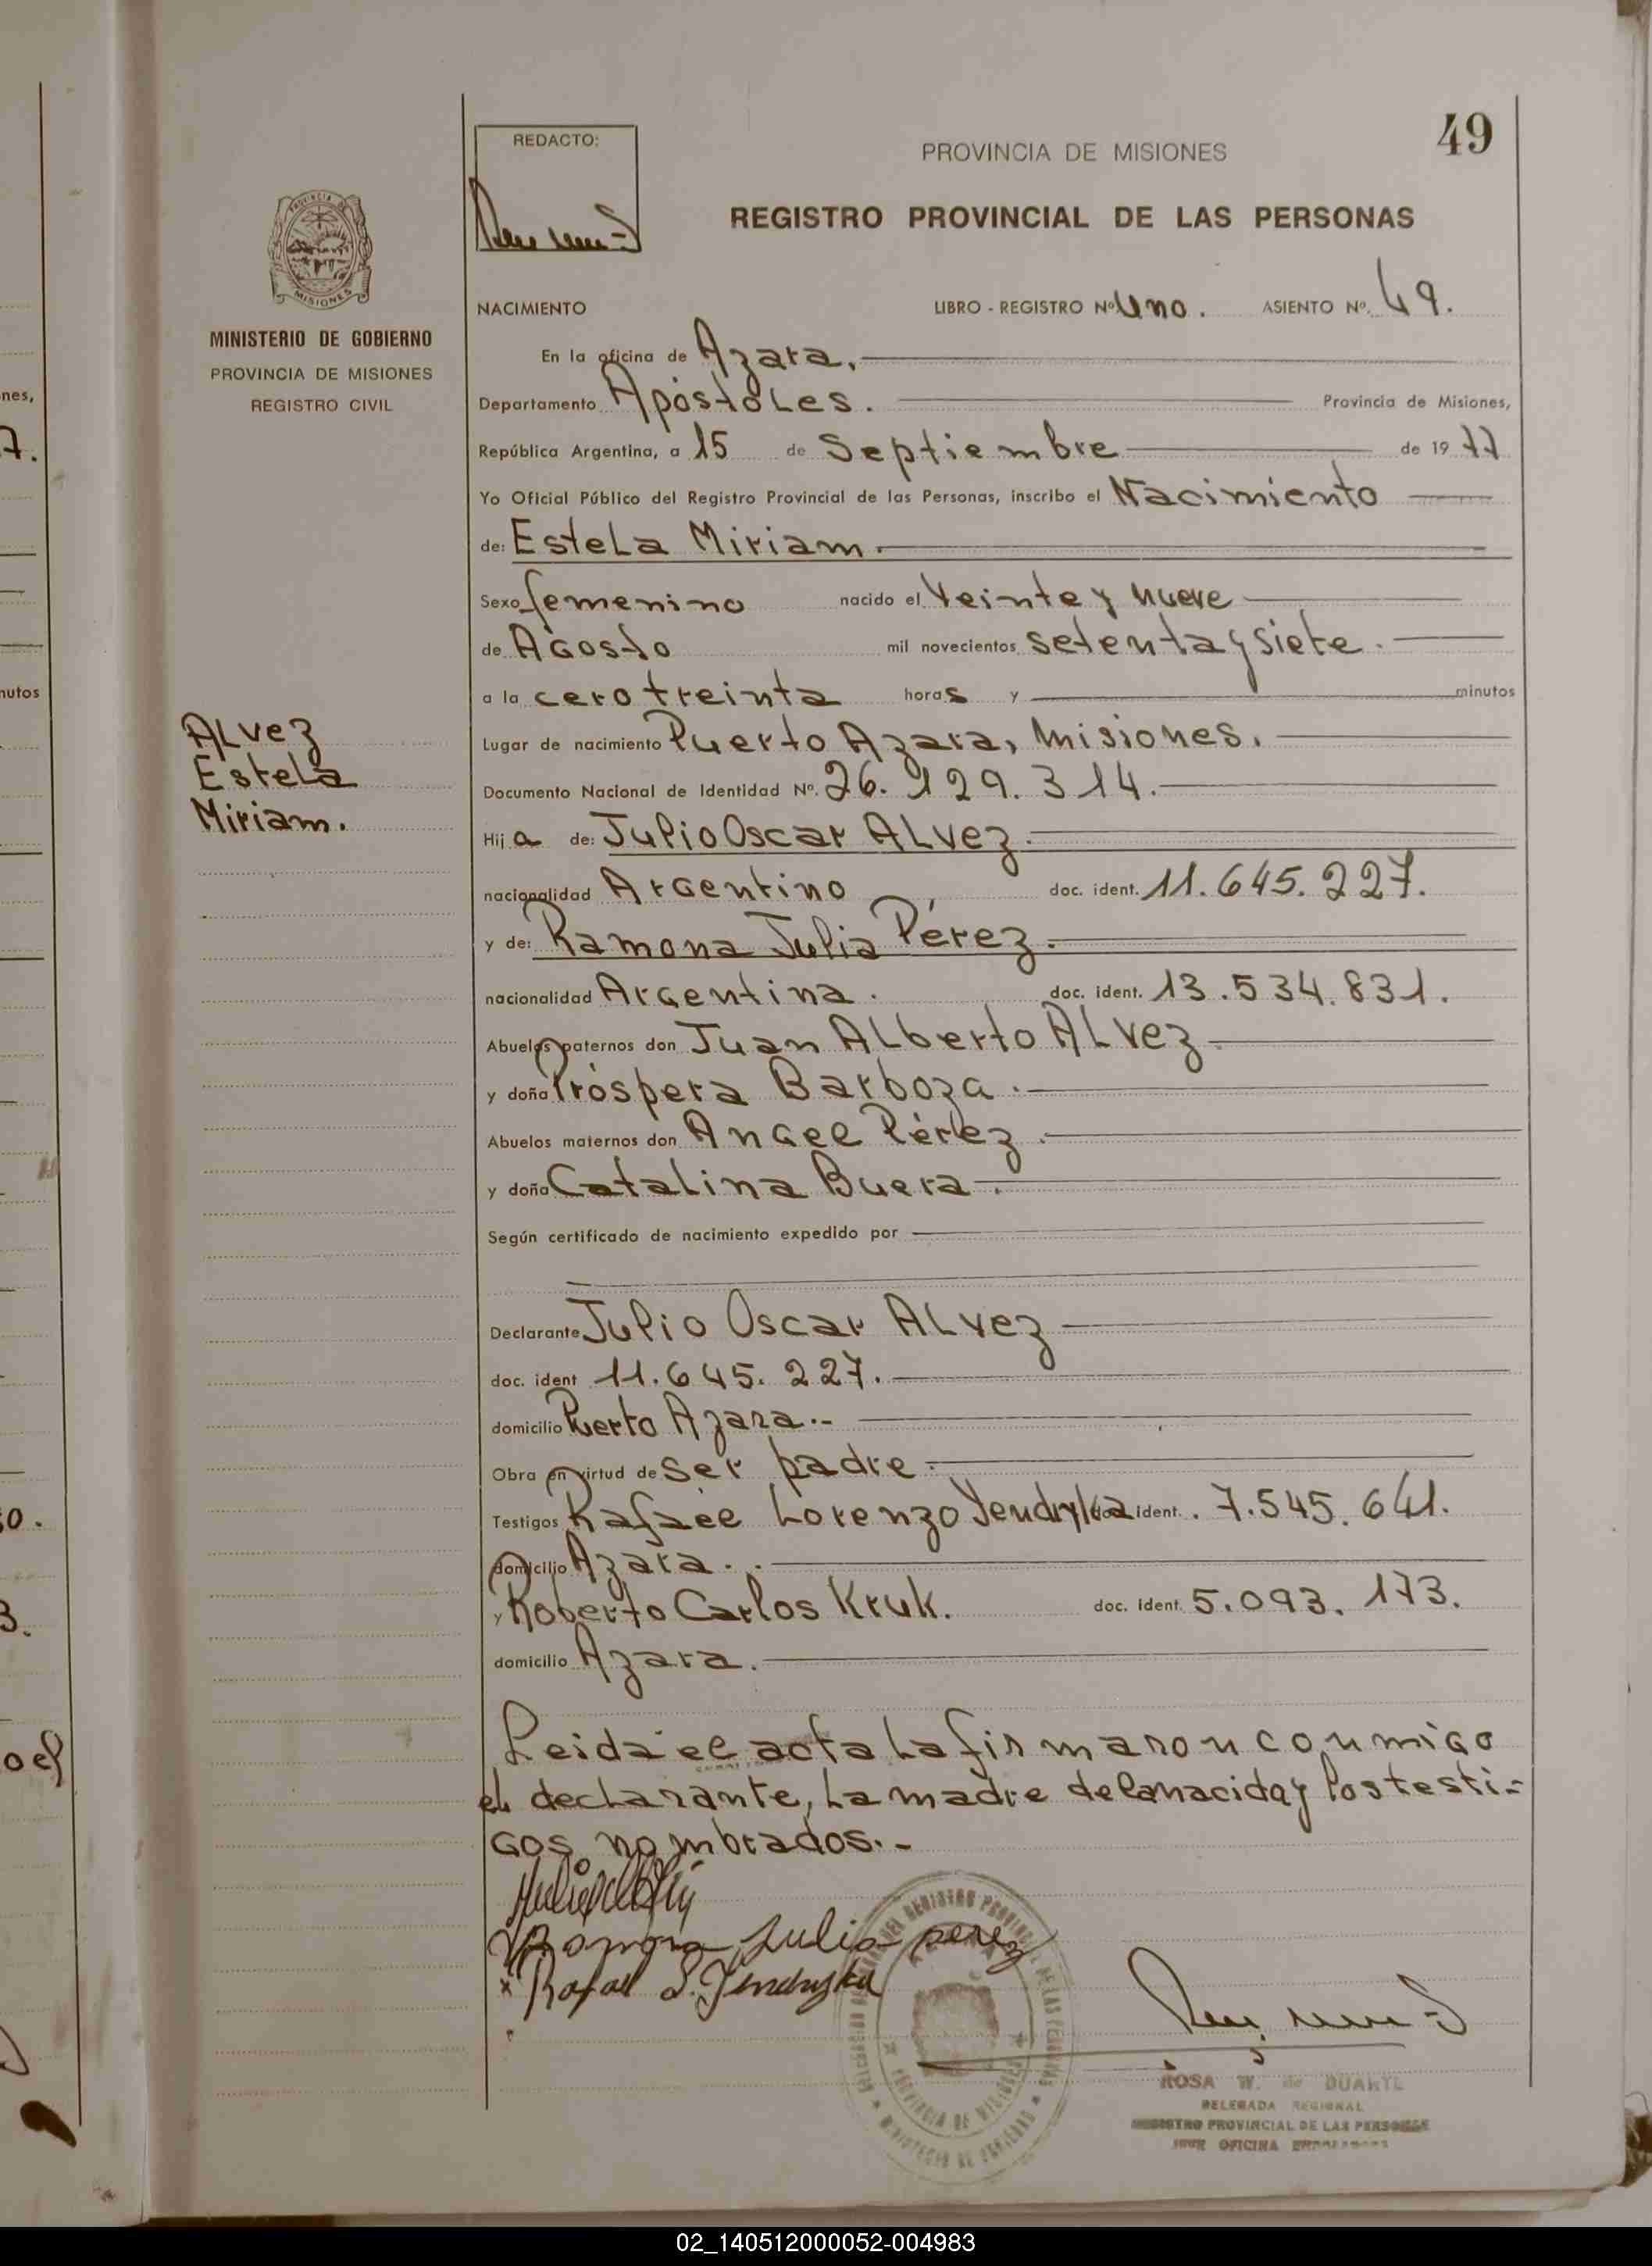 49
REDACTO:
PROVINCIA DE MISIONES
REGISTRO PROVINCIAL DE LAS PERSONAS
PROVINCIA DE
MISIONES
MINISTERIO DE GOBIERNO
PROVINCIA DE MISIONES
REGISTRO CIVIL
NACIMIENTO LIBRO - REGISTRO Nº Uno. ASIENTO Nº. 49.
En la oficina de Azara,
Departamento Apóstoles. Provincia de Misiones,
República Argentina, a 15 de Septiembre de 1977
Yo Oficial Público del Registro Provincial de las Personas, inscribo el Nacimiento
de: Estela Miriam.
Sexo femenino nacido el Veinte y nueve
de Agosto mil novecientos setenta y siete.
a la cero treinta horas y minutos
Alvez
Estela
Miriam.
Lugar de nacimiento Puerto Azara, Misiones.
Documento Nacional de Identidad Nº. 26.129.314.
Hija de: Julio Oscar Alvez.
nacionalidad Argentino doc. ident. 11.645.227.
y de: Ramona Julia Pérez.
nacionalidad Argentina. doc. ident. 13.534.831.
Abuelos paternos don Juan Alberto Alvez
y doña Próspera Barboza.
Abuelos maternos don Angel Pérez.
y doña Catalina Buera.
Según certificado de nacimiento expedido por
Declarante Julio Oscar Alvez
doc. ident 11.645.227.
domicilio Puerto Azara..-
Obra en virtud de ser padre.
Testigos Rafael Lorenzo Yendryka doc. ident. 7.545.641.
domicilio Azara..
y Roberto Carlos Kruk. doc. ident. 5.093.173.
domicilio Azara.
Leida el acta la firmaron conmigo
el declarante, la madre de la nacida y los testi-
gos nombrados.-
Ramona Julia perez
x Rafael L. Jendryka
ROSA W. de DUARTE
DELEGADA REGIONAL
REGISTRO PROVINCIAL DE LAS PERSONAS
nes,
7.
nutos
0.
3.
o el
02_140512000052-004983